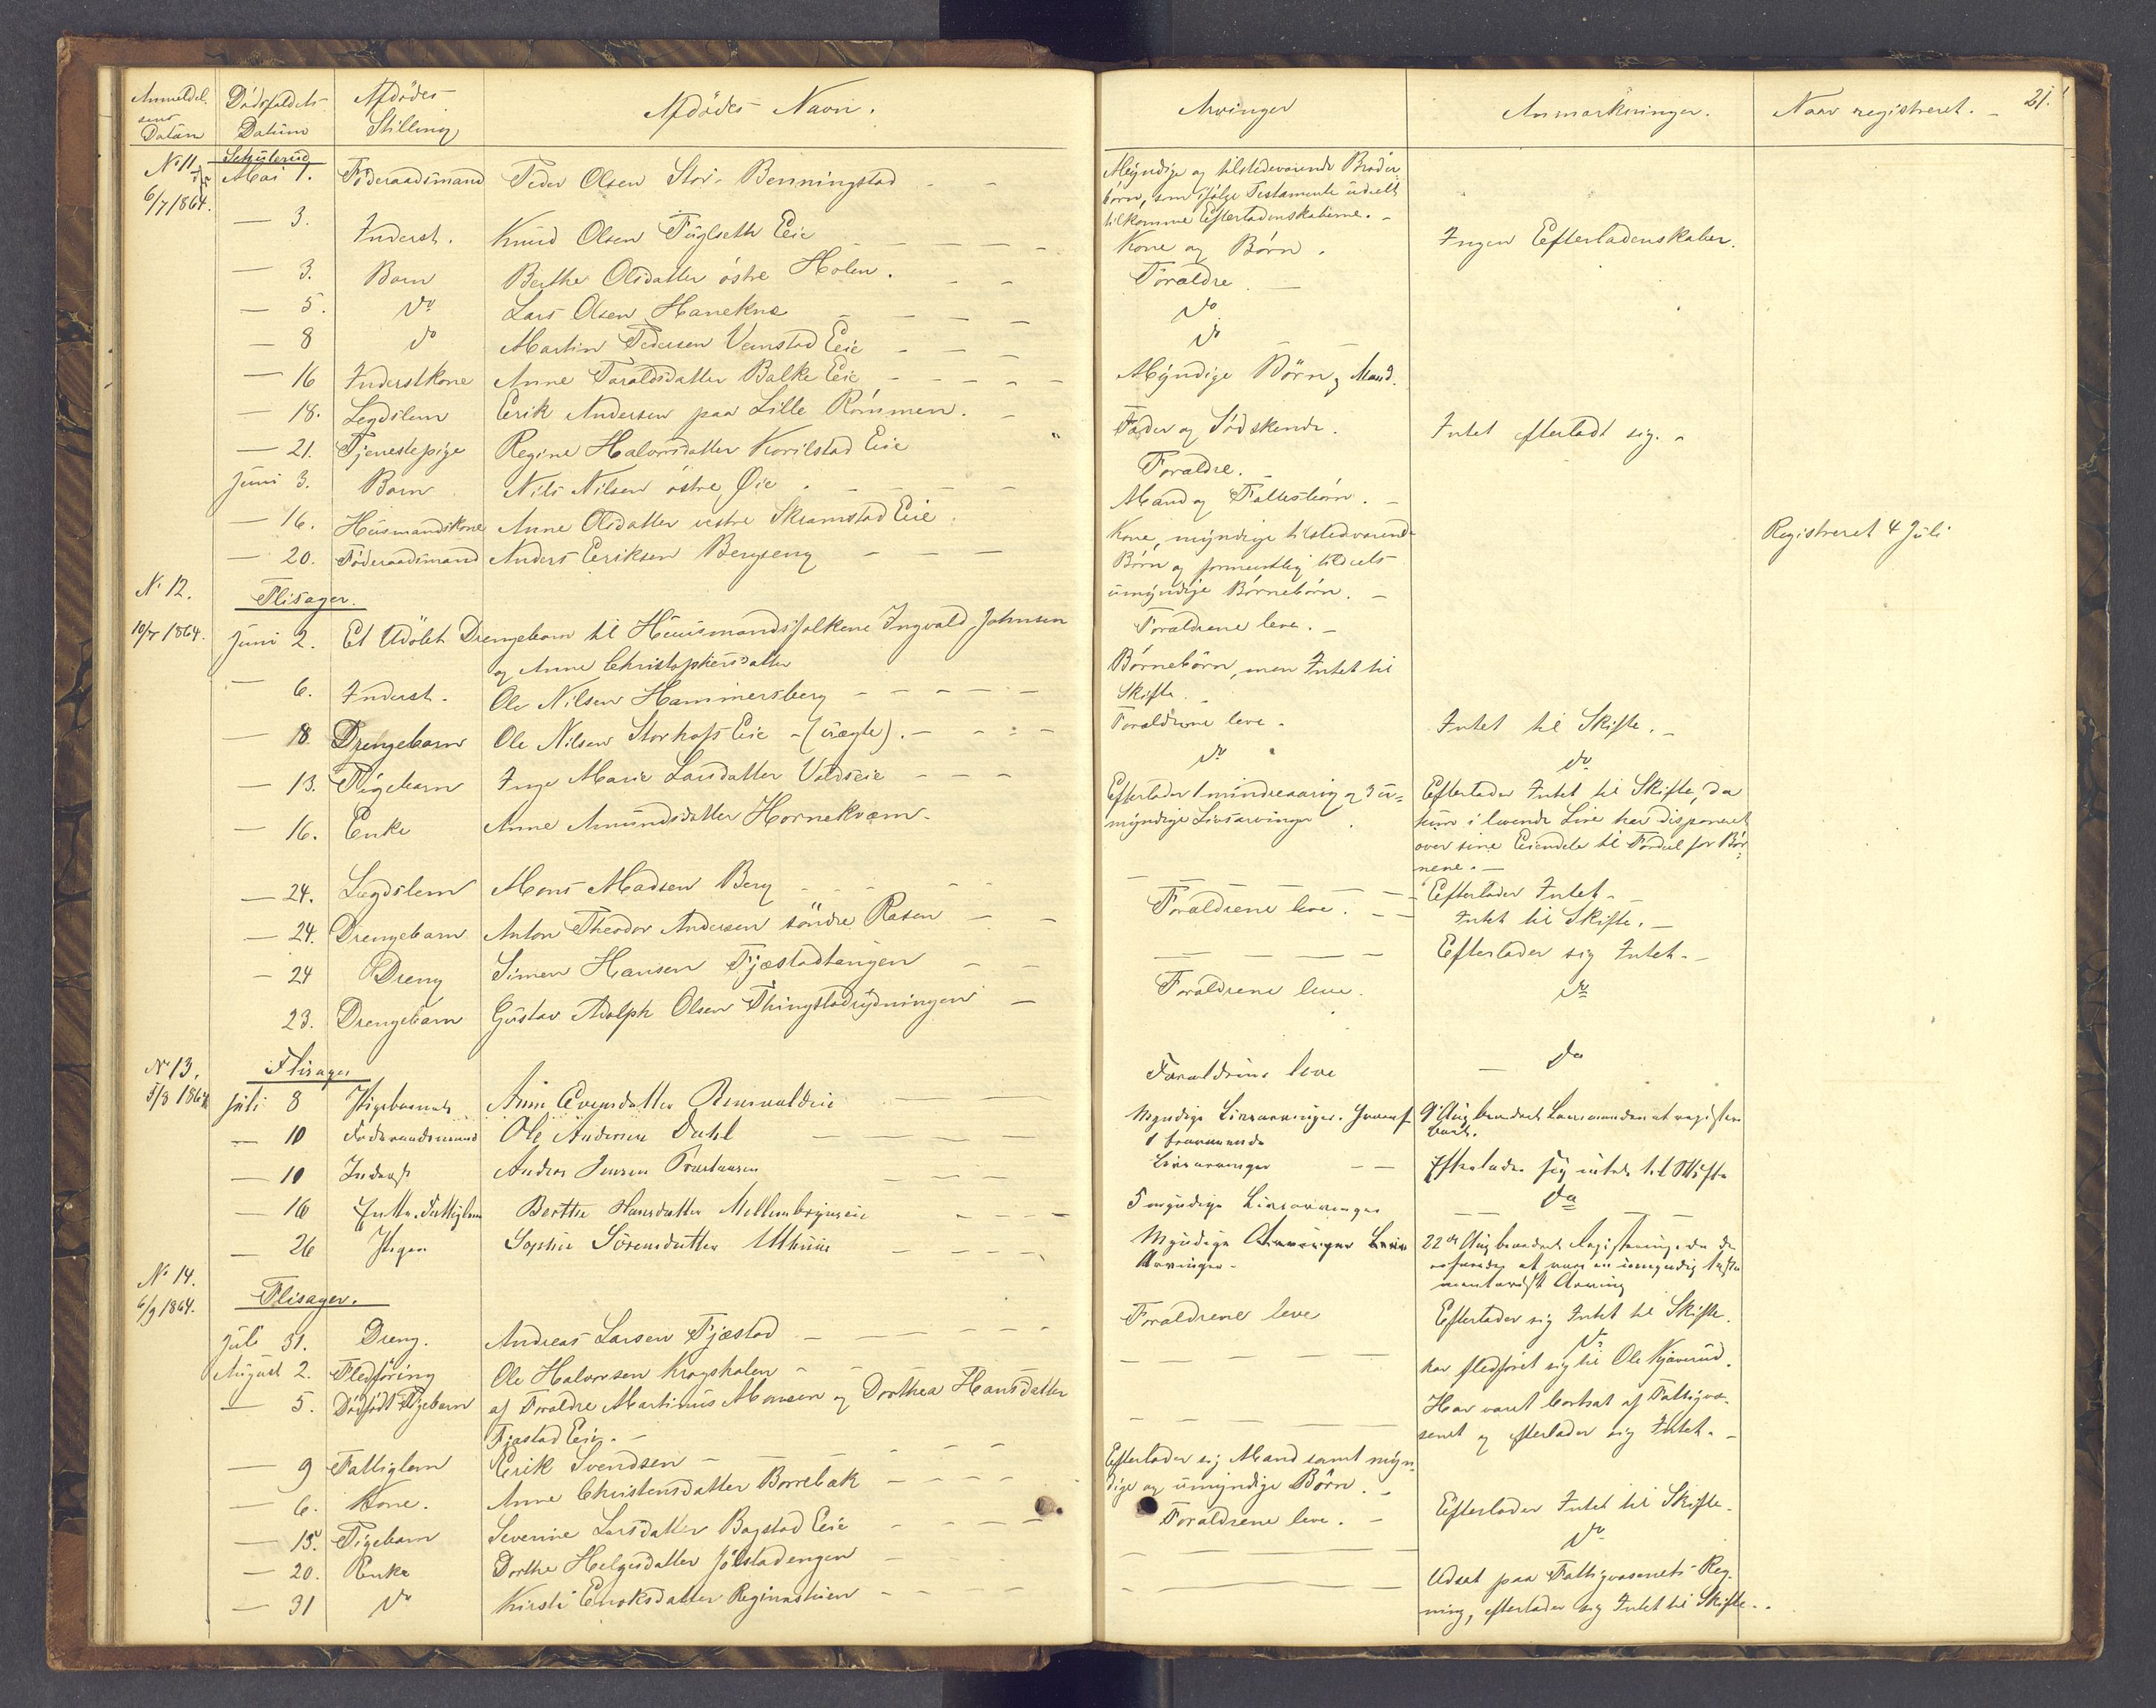 Anmeldel- Dödsfaldets Afdödes Afdödes Navn. Arvinger Anmærkninger. Naar registreret. 21.
sens Datum Datum Stilling
No 11 Schulerud
6/7 1864. Mai 1. Föderaadsmand Peder Olsen Stor-Benningstad Myndige og tilstedeværende Broder-
börn, som ifölge Testamente udelt
tilkomme Efterladenskaberne.
— 3. Inderst. Knud Olsen Fuglseth Eie Kone og Börn. Ingen Efterladenskaber.
— 3. Barn Berthe Olsdatter östre Holen. Forældre.
— 5. do Lars Olsen Hanekne do
— 8 do Martin Pedersen Vemstad Eie do
— 16 Inderstkone Anne Taraldsdatter Balke Eie Myndige Börn, Mand.
— 18. Legdslem Erik Andersen paa Lille Römmen. Fader og Södskende. Intet efterladt sig.
— 21. Tjenestepige Regine Halvorsdatter Korilstad Eie Forældre.
Juni 3. Barn Nils Nilsen östre Øie Mand og Fællesbörn.
— 16. Husmandskone Anne Olsdatter vestre Skramstad Eie Kone, myndige tilstedværende
— 20. Föderaadsmand Anders Eriksen Bergseng Börn og formentlig tildels Registreret 4 Juli
umyndige Börnebörn.
No 12. Flisager.
10/7 1864. Juni 2. Et Udöbt Drengebarn til Huusmandsfolkene Ingvald Johnsen Forældrene leve.
og Anne Christophersdatter
— 6. Inderst. Ole Nilsen Hammersberg Börnebörn, men Intet til
Skifte.
— 18. Drengebarn Ole Nilsen Storhofs Eie (uægte). Forældrene leve. Intet til Skifte.
— 13. Pigebarn Inge Marie Larsdatter Valdseie do do
— 16. Enke Anne Amundsdatter Hornekvæm Efterlader 1 mindreaarig og 3 u- Efterlader Intet til Skifte, da
myndige Livsarvinger. hun i levende Live har disponeret
over sine Eiendele til Fordeel for Bör-
nene.
— 24. Lægdslem Mons Madsen Berg Efterlader Intet.
— 24. Drengebarn Anton Theodor Andersen söndre Rasen Forældrene leve. Intet til Skifte.
— 24 Dreng Simen Hansen Fjæstadtangen Efterlader sig Intet.
23. Drengebarn Gustav Adolph Olsen Thingstadrydningen Forældrene leve. do
No 13. Flisager
5/8 1864 Juli 8 Pigebarnet Anne Evensdatter Forældrene leve do
— 10 Föderaadsmand Ole Andersen Dahl Myndige Livsarvinger. 9de Aug beordret Lensmanden at registere
— 10 Inderst Anders Jensen Livsarvinger Efterlader sig intet til Skifte
— 16 Enke, Fattiglem Berthe Hansdatter Mellembyseie 5 myndige Livsarvinger do
— 26 Pigen Sophie Sörensdatter Myndige Arvinger 22de Aug beordret Registrering, da der
Arvinger. erfares at være en umyndig testa-
mentarisk Arving
No 14.
6/9 1864. Flisager.
Juli 31. Dreng. Andreas Larsen Fjæstad Forældrene leve Efterlader sig Intet til Skifte.
August 2. Fledföring Ole Halvorsen Kragsholen do
har fledföret sig til Ole Kjaverud.
— 5. Dödfödt Pigebarn af Forældre Martinus Monsen og Dorthea Hansdatter
Fjæstad Eie.
— 9 Fattiglem Erik Svendsen Har været bortsat af Fattigvæ-
senet og efterlader sig Intet.
— 6. Kone. Anne Christensdatter Borrebæk Efterlader sig Mand samt myn-
dige og umyndige Börn. Efterlader Intet til Skifte.
— 15. Pigebarn Severine Larsdatter Bagstad Eie Forældrene leve. do
— 20. Enke Dorthe Helgesdatter Jölstadengen
— 31 do Kirsti Enoksdatter Reginastuen Udsat paa Fattigvæsenets Reg-
ning, efterlader sig Intet til Skifte.